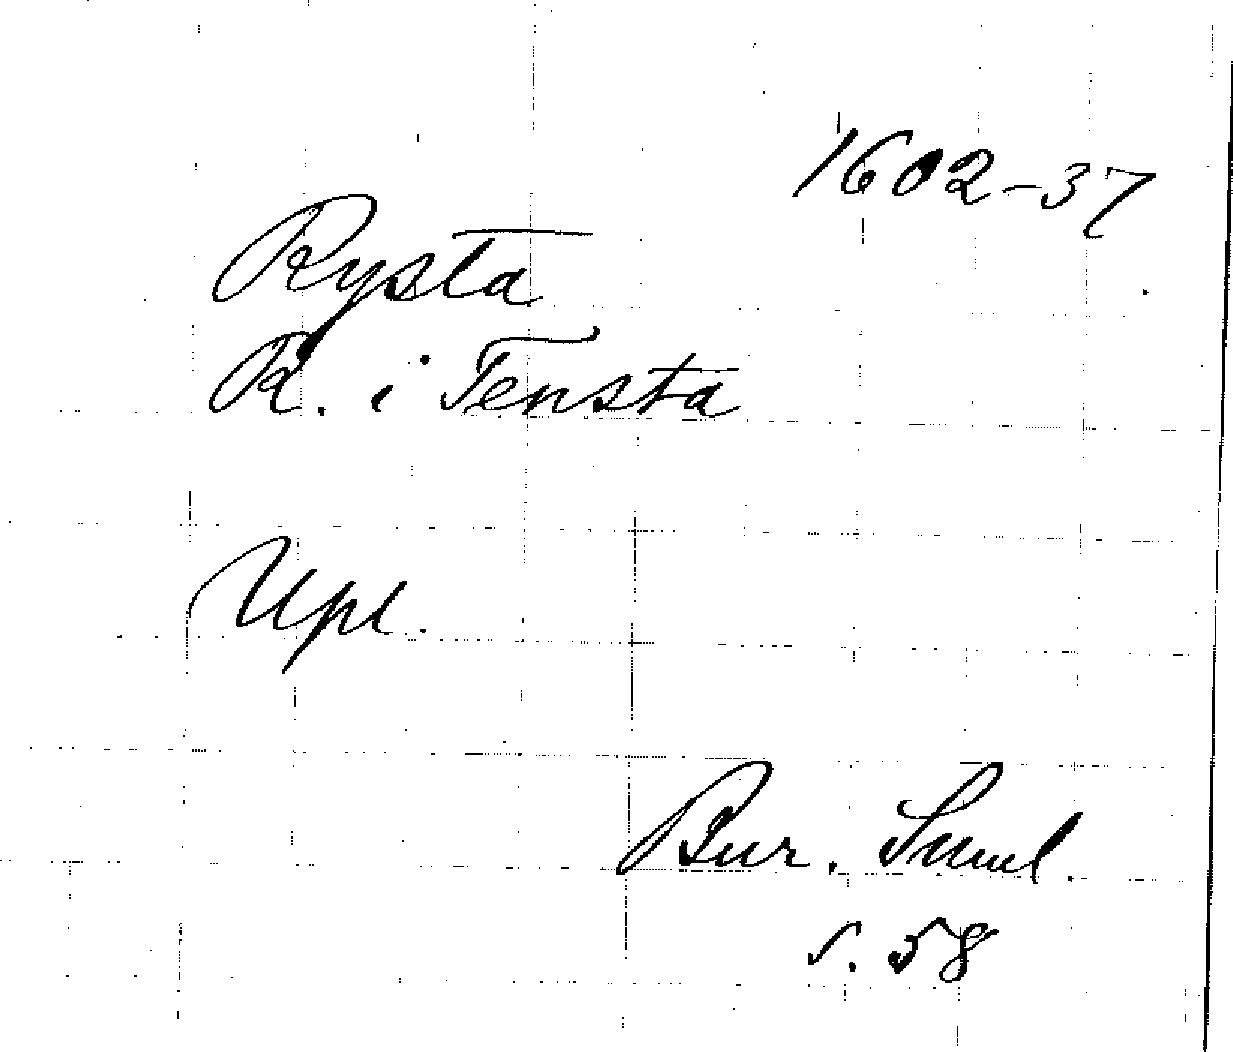 1602-37
Rysta
R. i Tensta
Upl.
Bur. Suml.
s. 58